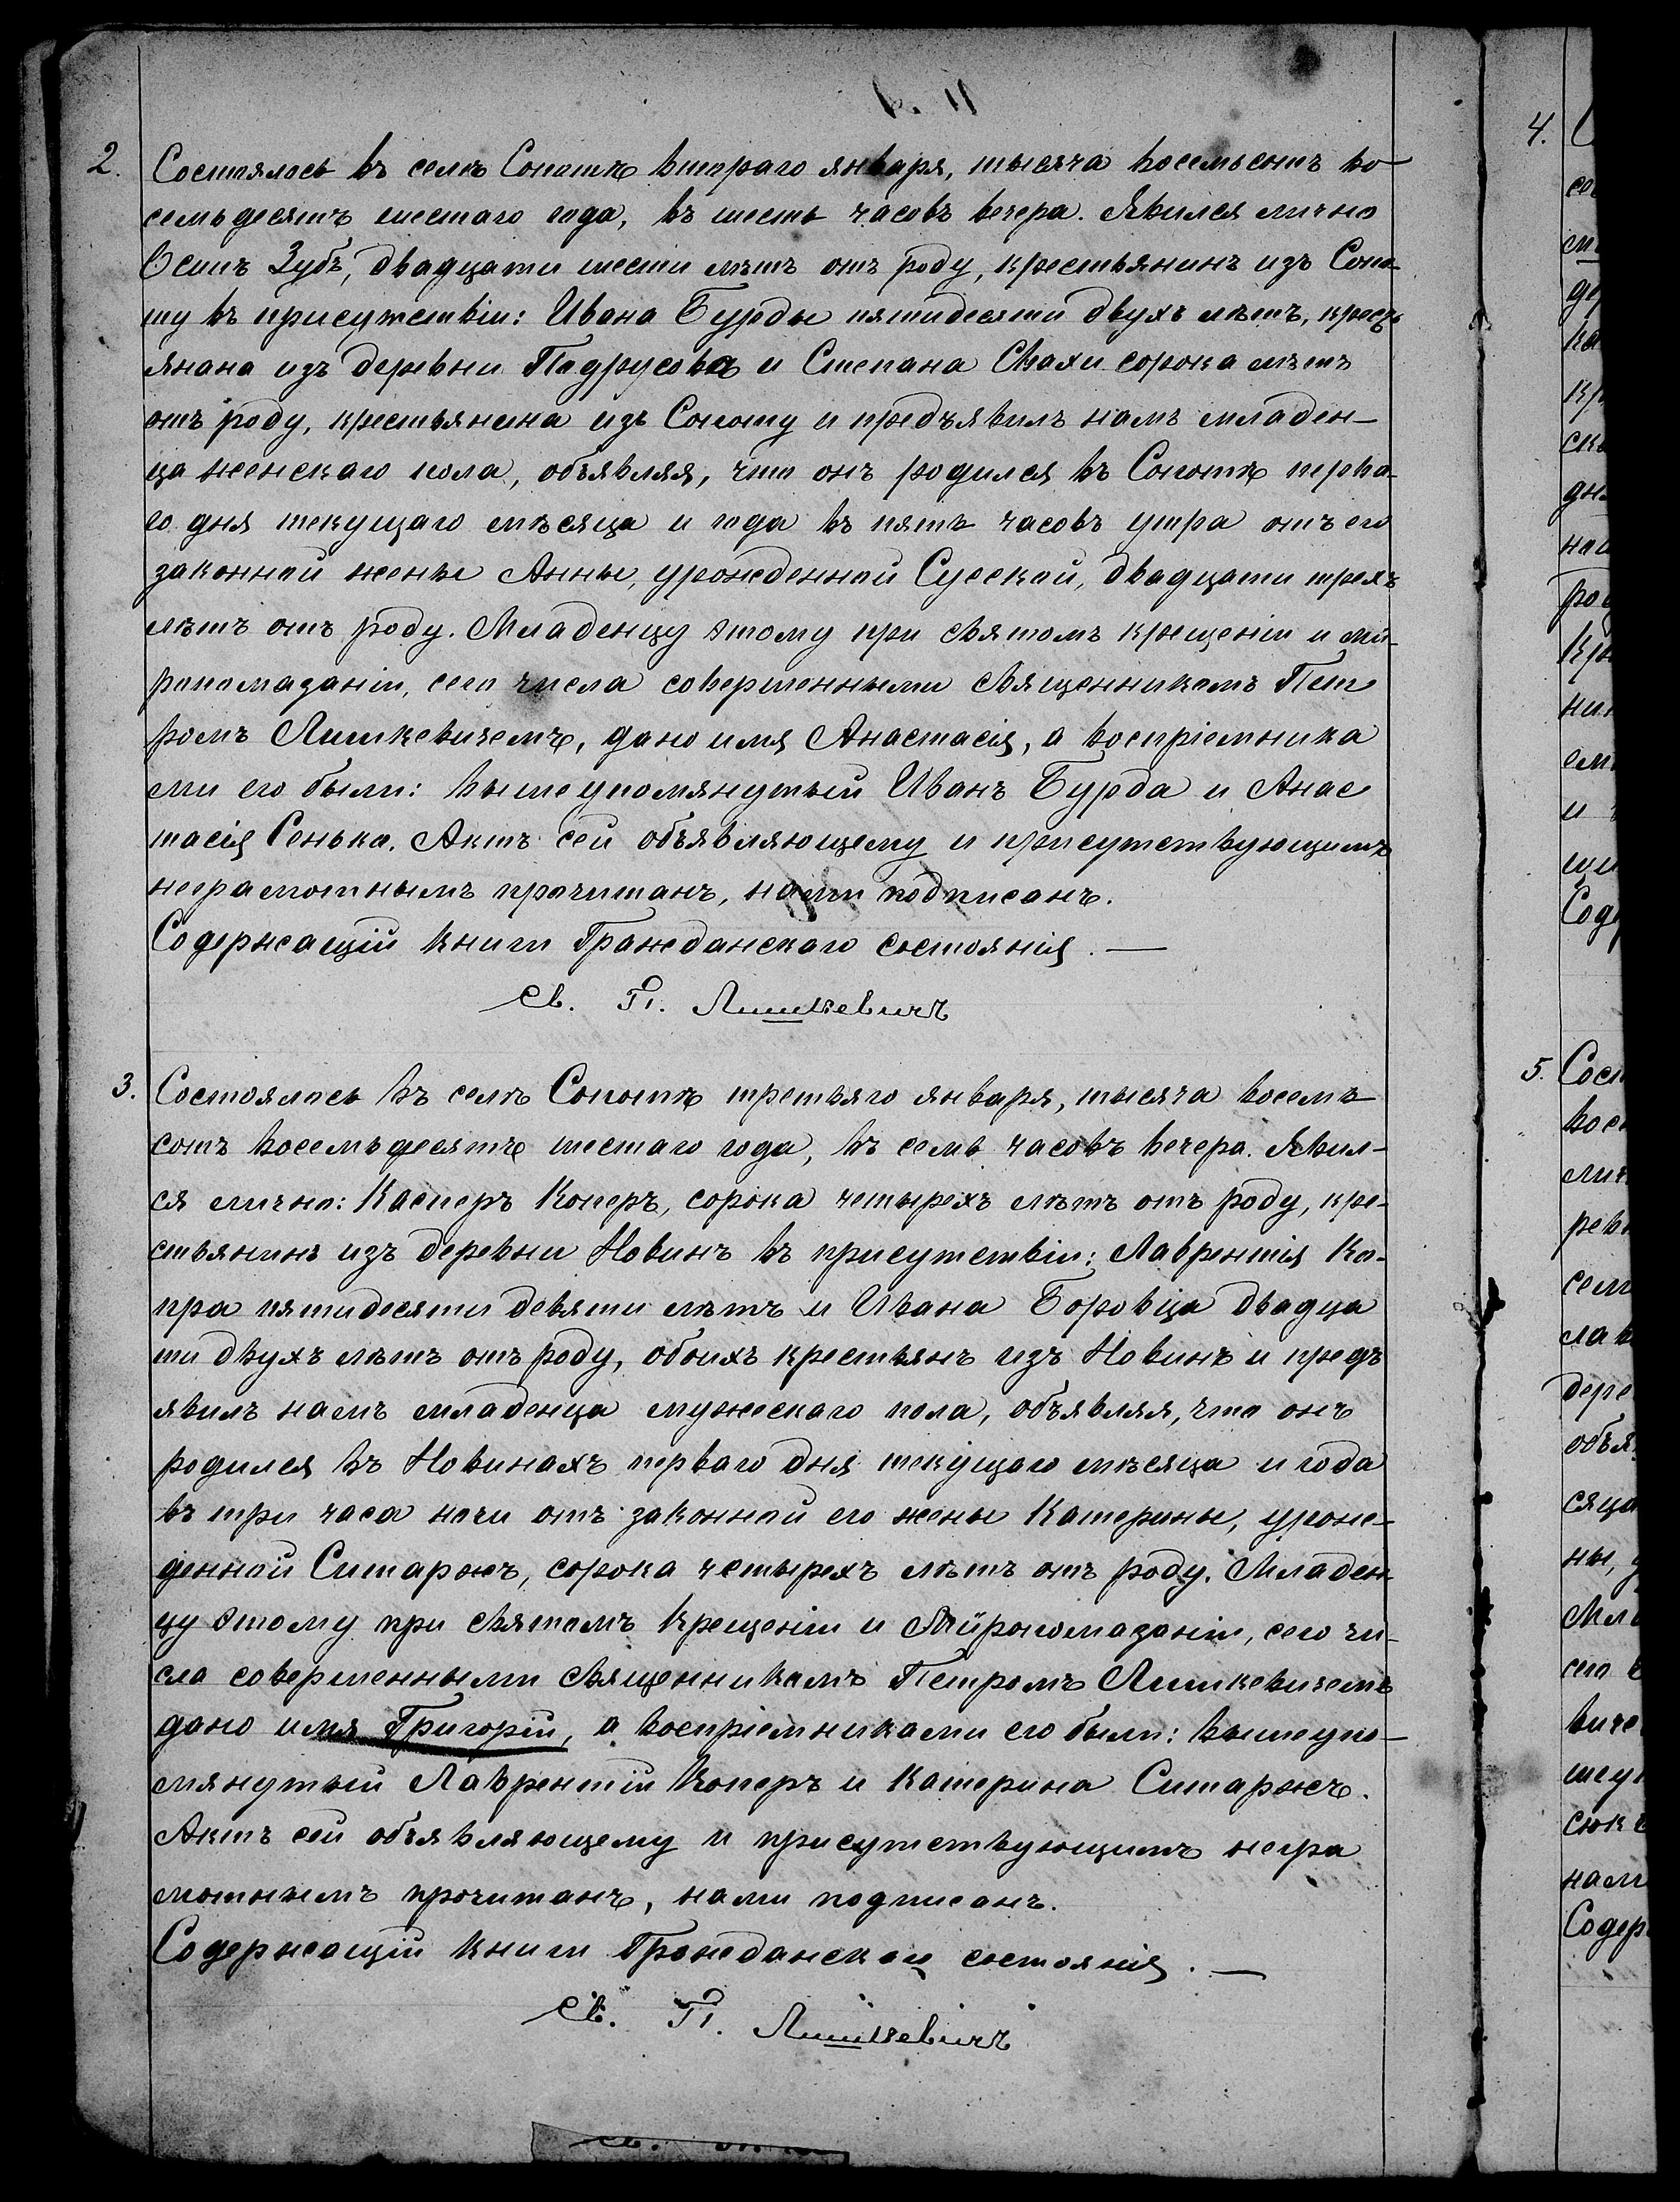 2. Состоялось въ селѣ Сопотѣ втораго января, тысяча восемьсотъ во-
семьдесятъ шестаго года, въ шесть часовъ вечера. Явился лично
Осипъ Зубъ, двадцати шести лѣтъ отъ роду, крестьянинъ изъ Сопо-
ту въ присутствіи: Ивана Бурды пятидесяти двухъ лѣтъ, кресть
янана изъ деревни Подрусова и Степана Свахи сорока лѣтъ
отъ роду, крестьянина изъ Сопоту и предъявилъ намъ младен-
ца женскаго пола, объявляя, что онъ родился въ Сопотѣ перва-
го дня текущаго мѣсяца и года въ пять часовъ утра отъ его
законной жены Анны, урожденной Сусской, двадцати трехъ
лѣтъ отъ роду. Младенцу этому при святомъ крещеніи и мѵ-
ропомазаніи, сего числа совершенными священникомъ Пет
ромъ Лишкевичемъ, дано имя Анастасія, а воспріемника
ми его были: вышеупомянутый Иванъ Бурда и Анас
тасія Сенька. Актъ сей объявляющему и присутствующимъ
неграмотнымъ прочитанъ, нами подписанъ.
Содержащій книги Гражданскаго состоянія. —
Св. П. Лишкевичъ
3. Состоялось въ селѣ Сопотѣ третьяго января, тысяча восемь
сотъ восемьдесятъ шестаго года, въ семь часовъ вечера. Явил-
ся лично: Касперъ Коперъ, сорока четырехъ лѣтъ отъ роду, кре-
стьянинъ изъ деревни Новинъ въ присутствіи: Лаврентія Ко-
пра пятидесяти девяти лѣтъ и Ивана Боровца двадца
ти двухъ лѣтъ отъ роду, обоихъ крестьянъ изъ Новинъ и предъ
явилъ намъ младенца мужескаго пола, объявляя, что онъ
родился въ Новинахъ перваго дня текущаго мѣсяца и года
въ три часа ночи отъ законной его жены Катерины, урож-
денной Ситаржъ, сорока четырехъ лѣтъ отъ роду. Младен-
цу этому при святомъ Крещеніи и Мѵропомазаніи, сего чи-
сла совершенными священникомъ Петромъ Лишкевичемъ
дано имя Григорій, а воспріемниками его были: вышеупо-
мянутый Лаврентій Коперъ и Катерина Ситаржъ.
Актъ сей объявляющему и присутствующимъ негра
мотнымъ прочитанъ, нами подписанъ.
Содержащій книги Гражданскаго состоянія. —
Св. П. Лишкевичъ
4.
5. Сост